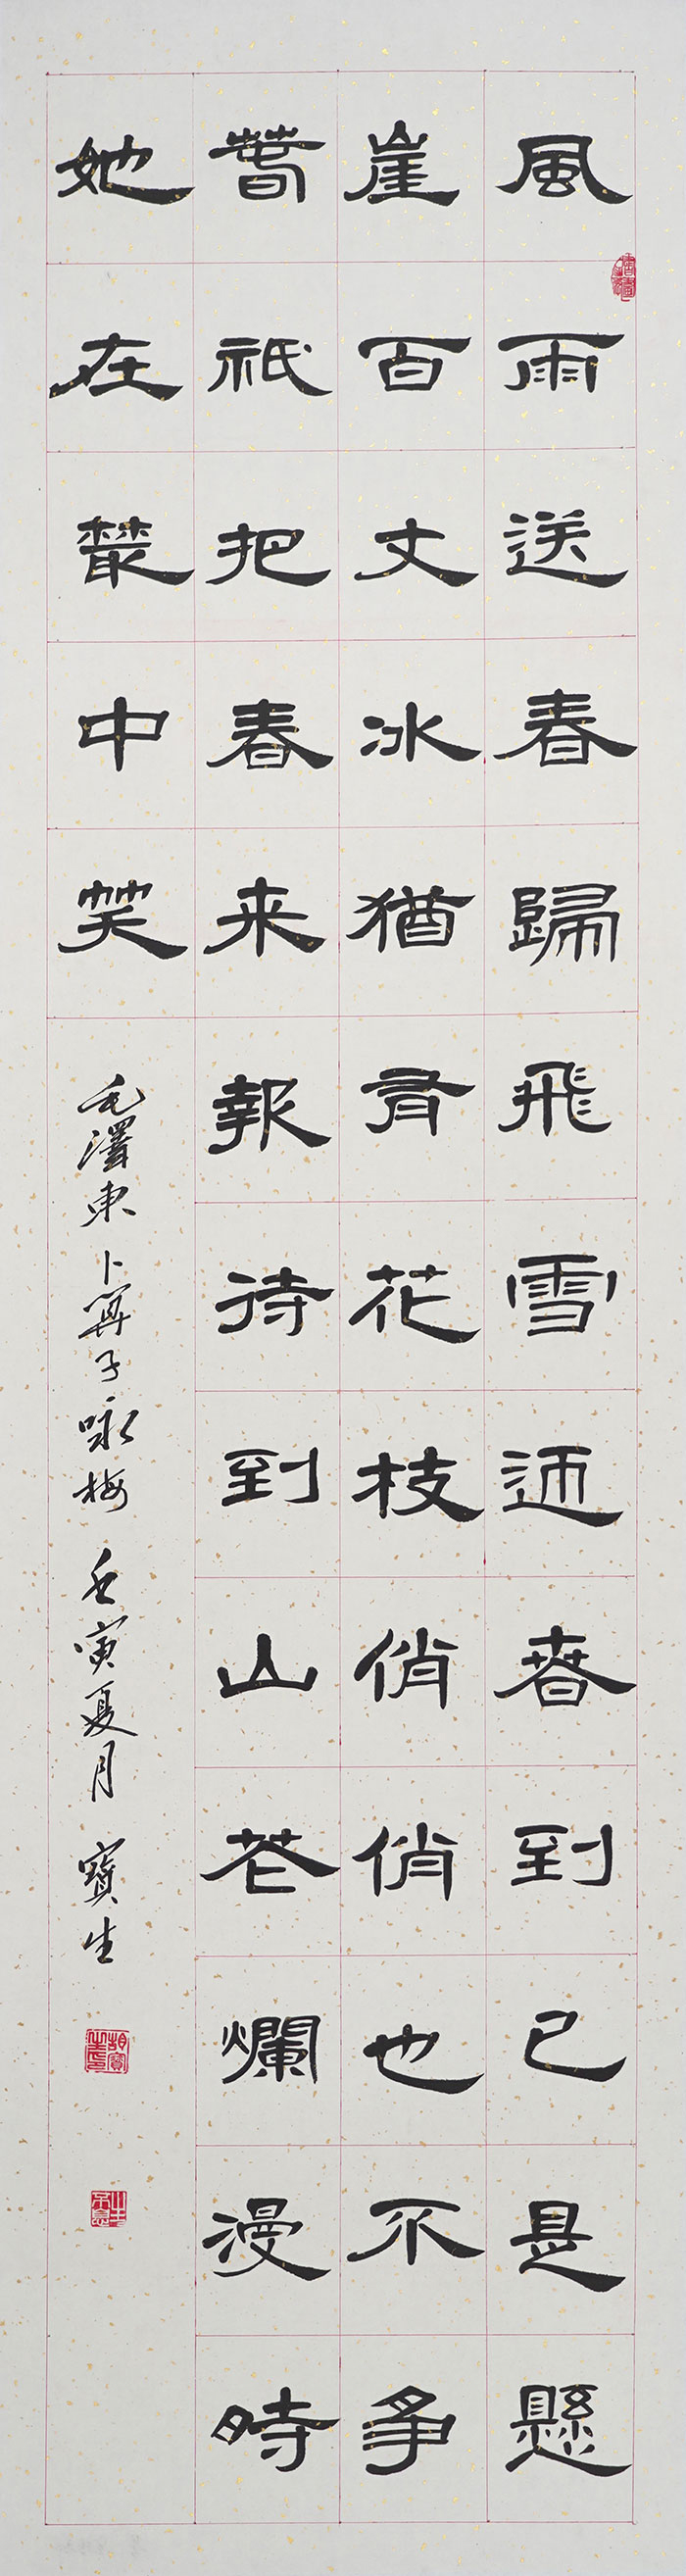 風雨送春歸飛雪迎春到已是懸
崖百丈冰猶有花枝俏俏也不爭
春祇把春来報待到山花爛漫時
她在叢中笑
毛澤東卜算子咏梅 壬寅夏月 寶生
胡寶生印